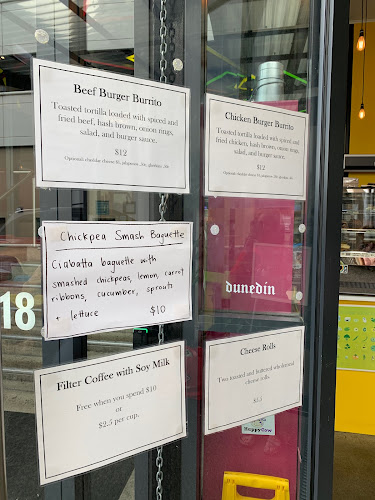 Beef Burger Burrito
Toasted tortilla loaded with spiced and
fried beef, hash brown, onion rings,
salad, and burger sauce.
$12
Chicken Burger Burrito
Toasted tortilla loaded with spiced and
fried chicken, hash brown, onion rings,
salad, and burger sauce.
$12
Chickpea Smash Baguette
Ciabatta baguette with
smashed chickpeas, lemon, carrot
ribbons, cucumber, sprouts
+ lettuce
$10
18
dunedin
Filter Coffee with Soy Milk
Free when you spend $10
or
$2.5 per cup.
Cheese Rolls
Two toasted and buttered wholemeal
cheese rolls.
HappyCow